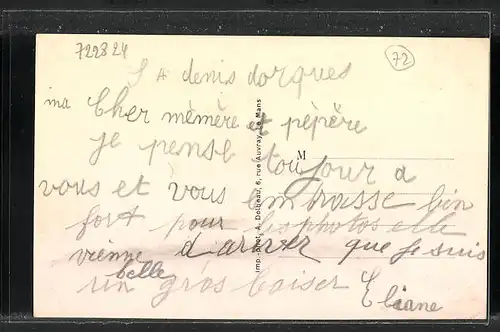 722824
72
S A denis dorques
ma Cher mèmère et pèpère
je pense toujour a
vous et vous embrasse bien
fort pour les photos elle
vienne d'arriver que je suis
belle
un gros baiser Eliane
M
Imp.-Phot. A. Dolbeau, 6, rue Auvray, Le Mans